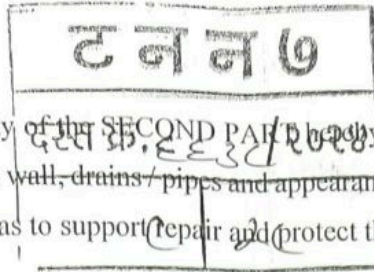 टनन७
y of the SECOND PART hereby
दस्त क्र. /२०२४
wall, drains / pipes and appearan
as to support repair and protect th